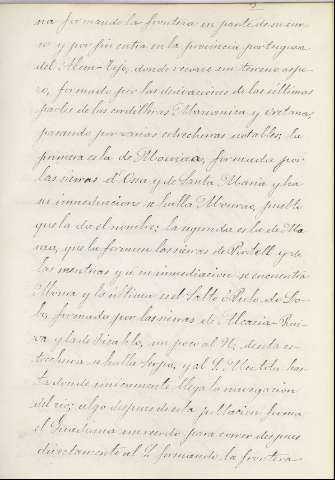 na formando la frontera en parte de su cur-
so y por fin entra en la provincia portuguesa
del Alem-Tejo, donde recorre un terreno aspe-
ro, formado por las derivaciones de las últimas
partes de las cordilleras Marianica y Oretana;
pasando por varias estrechuras notables; la
primera es la de Mourao, formada por
las sierras d'Ossa y de Santa Maria y ha
su inmediacion se halla Mourao, pueblo
que la da el nombre; la segunda es la de
que la forman las sierras de Portell y de
las mentiras y a su inmediacion se encuentra
Moura y la última es el Salto ó Pulo de Lo-
bo, formado por las sierras de Alcaria-Rui-
va y la de un poco al N. de esta es-
trechura se halla Serpa, y al S. Mertola has-
ta donde unicamente llega la navegacion
del rio; algo despues de esta poblacion forma
el Guadiana un recodo para correr despues
directamente al S. formando la frontera